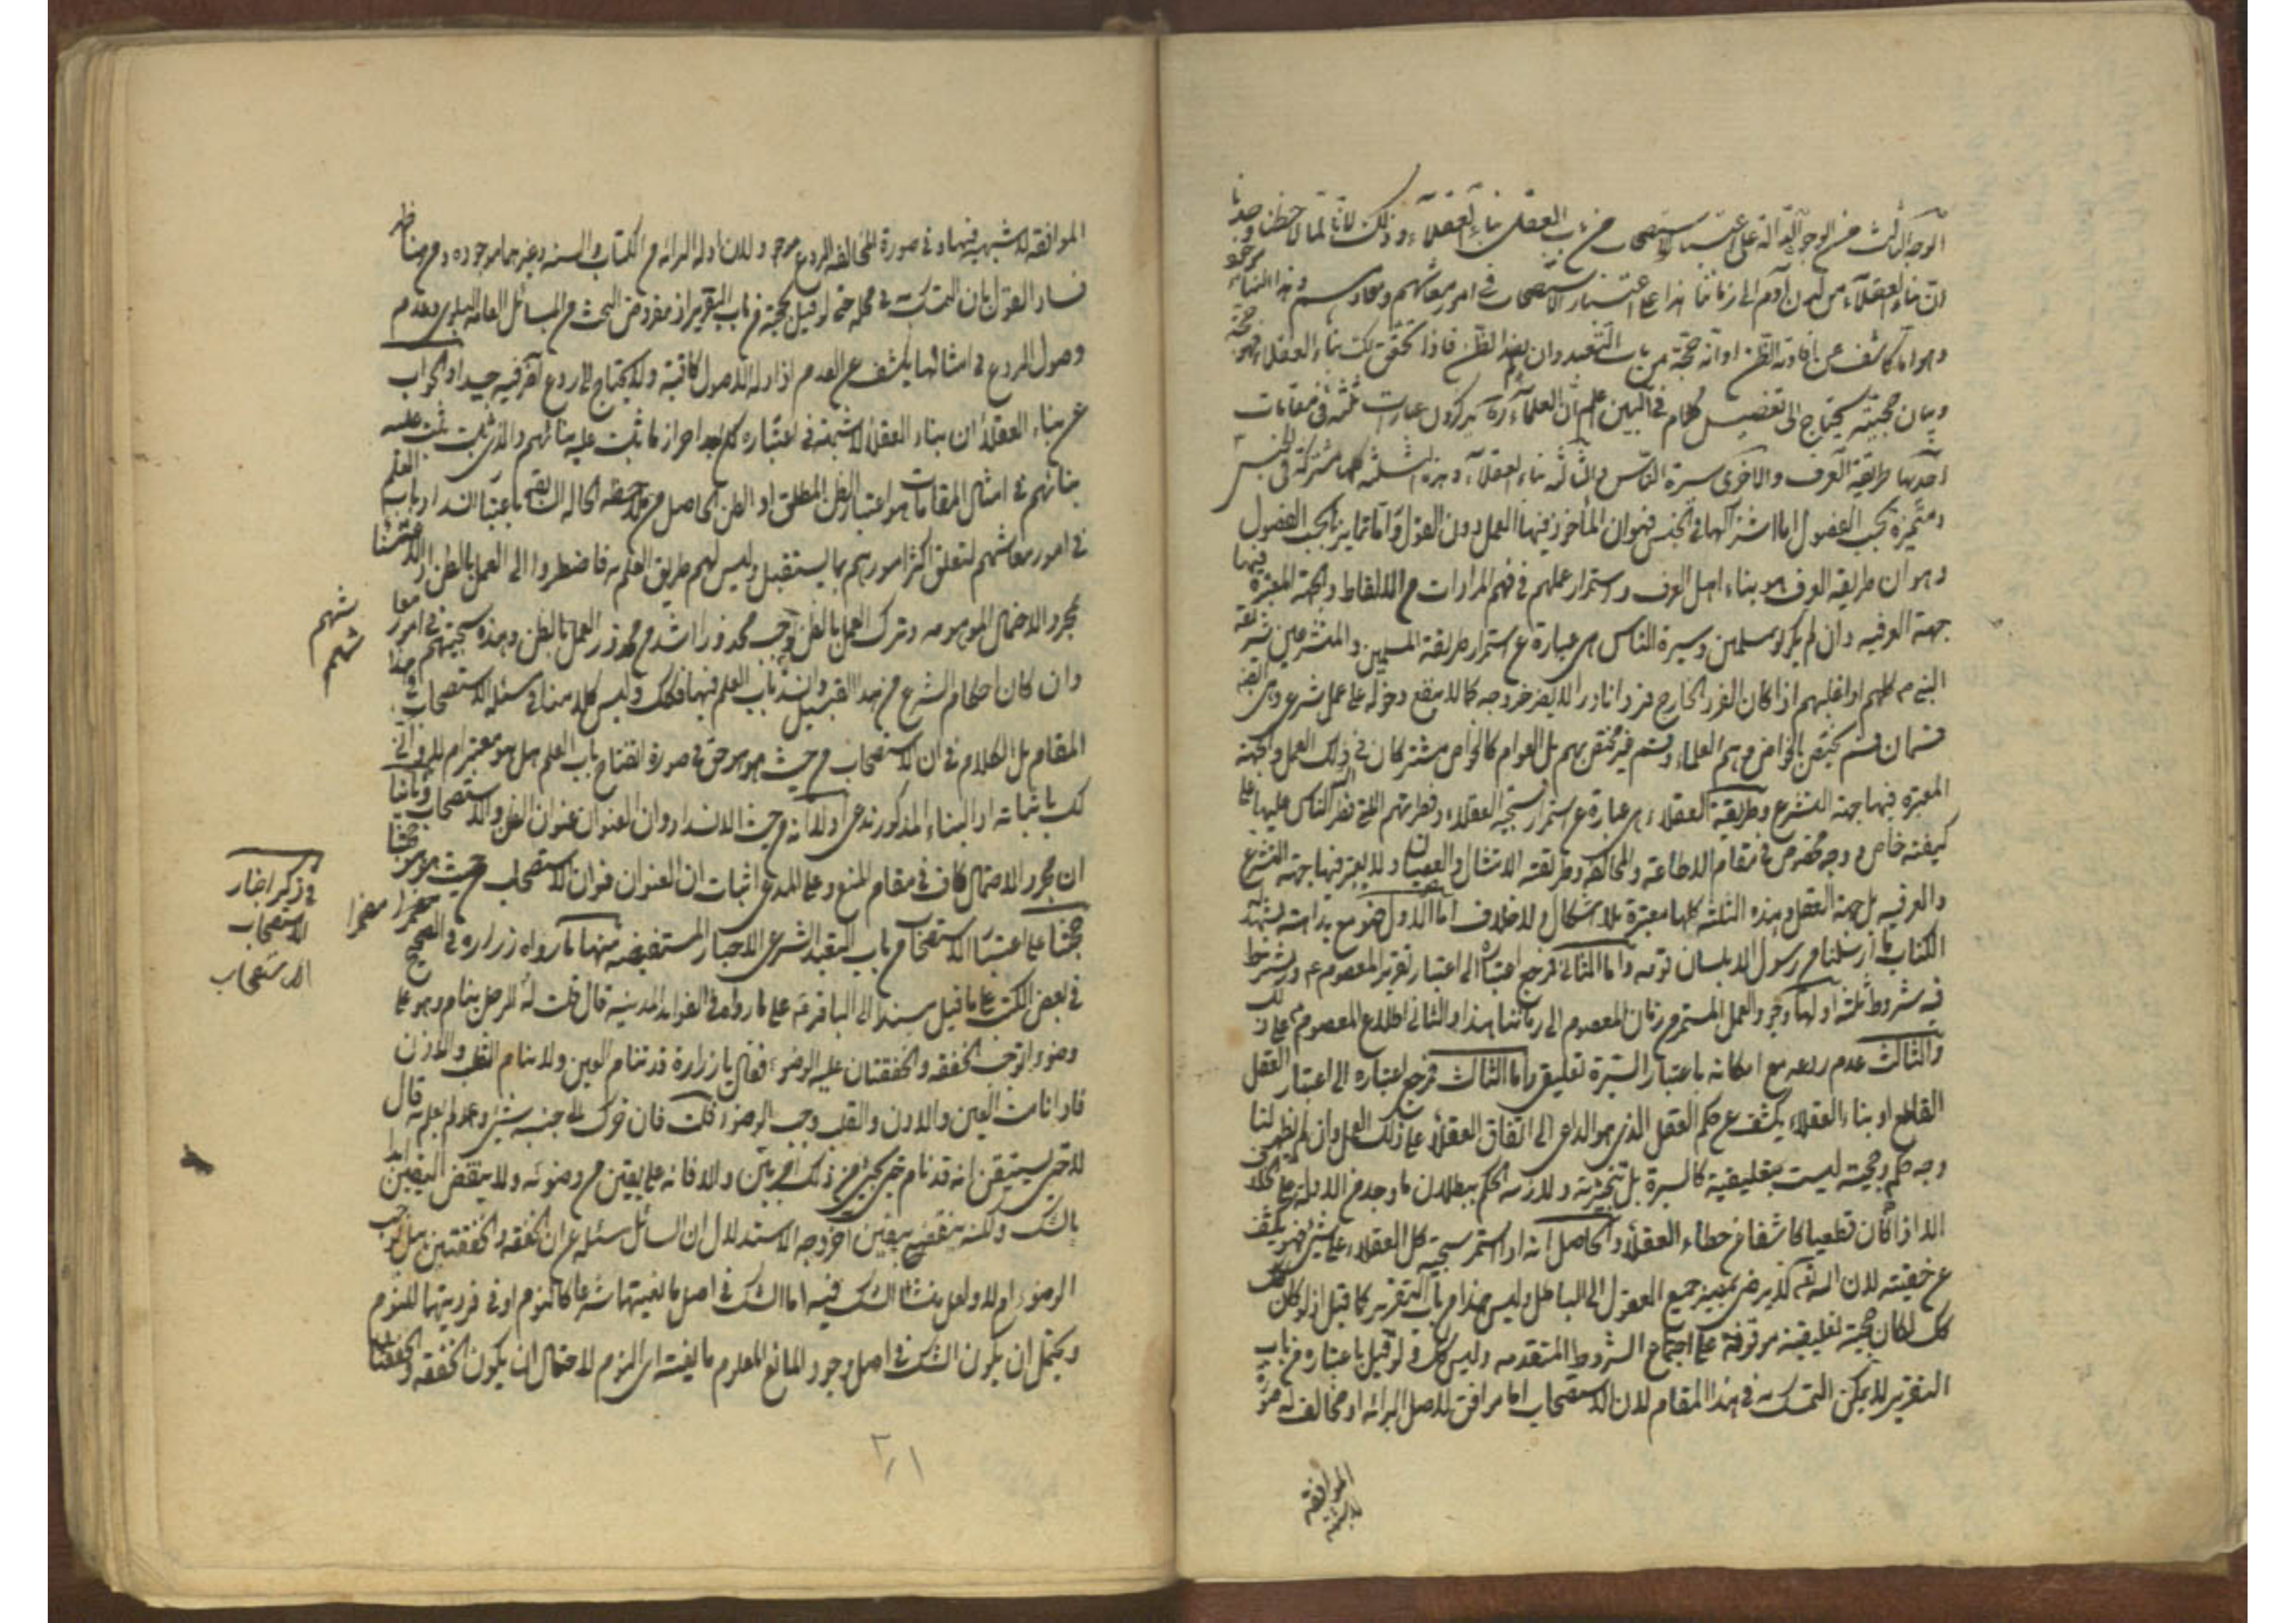 الوجه الثالث من الوجوه الدالة على اعتبار الاستصحاب من باب العقل بناء العقلاء وذلك لانا لما لاحظنا وجدنا
ان بناء العقلاء من لدن آدم الى زماننا هذا على اعتبار الاستصحاب في امور معاشهم ومعادهم وهذا البناء
وهو اما كاشف عن افادته الظن او انه حجة من باب التعبد وان لم يفد الظن فاذا تحقق بناء العقلاء فهو حجة
وبيان حجيته يحتاج الى تفصيل كلام في البين اعلم ان العلماء ره يذكرون عبارات ثلثة في مقامات
احديها طريقة العرف والاخرى سيرة الناس والثالثة بناء العقلاء وهذه الثلثة كلها مشتركة في الجنس
ومتميزة بحسب الفصول اما اشتراكها في الجنس فهو ان المأخوذ فيها العمل دون القول واما تمايزها بحسب الفصول
وهو ان طريقة العرف هو بناء اهل العرف واستمرار عملهم في فهم المرادات من الالفاظ والجهة المعتبرة فيها
جهة العرفيه وان لم يكونوا مسلمين وسيرة الناس هي عبارة عن استمرار طريقة المسلمين والمتشرعين
كلهم او اغلبهم اذا كان الفرد الخارج فردا نادرا لا يضر خروجه كما لا ينفع دخوله على عمل شرعي وهي
قسمان قسم يختص بالخواص وهم العلماء وقسم غير مختص بهم بل العوام كالخواص مشتركان في ذلك العمل والجهة
المعتبره فيها جهة التشرع وطريقة العقلاء هي عبارة عن استمرار سجية العقلاء وفطرتهم التي فطر الناس عليها على
كيفية خاص و وجه مخصوص في مقام الاطاعة والمخالفة وطريقة الامتثال والعصيان ولا يعتبر فيها جهة التشرع
والعرفيه بل جهة العقل وهذه الثلثة كلها معتبرة بلا اشكال ولا خلاف اما الاول فهو مع بداهته يشهد له
الكتاب ما ارسلنا من رسول الا بلسان قومه واما الثاني فمرجع اعتباره الى اعتبار تقرير المعصوم ع ويشترط
فيه شروط ثلثة اولها وجود العمل المستمر من زمان المعصوم الى زماننا هذا والثاني اطلاع المعصوم على ذلك
والثالث عدم ردعه مع امكانه فاعتبار السيرة تعليقي واما الثالث فمرجع اعتباره الى اعتبار العقل
القاطع اذ بناء العقلاء يكشف عن حكم العقل الذي هو الداعي الى اتفاق العقلاء على ذلك العمل وان لم يظهر لنا
وجه حكمه وحجيته ليست تعليقية كالسيرة بل تنجيزية ولازمه الحكم ببطلان ما وجد من الادلة على خلافه
الا اذا كان قطعيا كاشفا عن خطاء العقلاء والحاصل انه اذا استمر سجية كل العقلاء على شيئ فهو يكشف
عن حقيته لان الله لا يرضى بمسير جميع العقول الى الباطل وليس هذا من باب التقرير كما قيل اذ لو كان
كك لكان حجيته تعليقية موقوفة على اجتماع الشروط المتقدمه وليس كك ولو قيل باعتباره من باب
التقرير لا يمكن التمسك به في هذا المقام لان الاستصحاب اما موافق لاصل البرائه او مخالف له
الموافقة
لا شبهة
الموافقه لا شبهة فيها وفي صورة المخالفه الردع موجود لان ادلة البرائه من الكتاب والسنه وغيرهما موجوده ومن هنا ظهر
فساد القول بان التمسك في محله حتى لو قيل بحجيته من باب التقرير اذ مفروض البحث من المسائل العامه البلوى وعدم
وصول الردع في امثالها يكشف عن العدم اذ ادلة الاصول كافية ولا يحتاج الى ردع آخر فيه جيدا والجواب
عن بناء العقلاء ان بناء العقلاء لا شبهة في اعتباره كل بعد احراز ما ثبت عليه بنائهم والذي ثبت عليه
بنائهم في امثال المقامات هو اعتبار الظن المطلق او الظن الحاصل من ملاحظة الحالة السابقة باعتبار انسداد باب العلم
في امور معاشهم لتعلق اكثر امورهم بما يستقبل وليس لهم طريق العلم به فاضطروا الى العمل بالظن
بمجرد الاحتمال الموهومه وترك العمل بالظن يوجب محذورا اشد من محذور العمل بالظن وهذه سجيتهم في امور معاشهم
وان كان احكام الشرع من هذا القبيل وانسد باب العلم فيها فكك وليس كلامنا في مسئله الاستصحاب في هذا
المقام بل الكلام في ان الاستصحاب من حيث هو هو حتى في صورة انفتاح باب العلم هل هو معتبر ام لا
باثباته اذ البناء المذكور ندعي اولا انه من حيث الانسداد وان العنوان عنوان الظن والاستصحاب وثانيا
ان مجرد الاحتمال كاف في مقام المنع وعلى المدعي اثبات ان العنوان عنوان الاستصحاب من حيث هو هو
حجتنا على اعتبار الاستصحاب من باب التعبد الشرعي الاخبار المستفيضه منها ما رواه زراره في الصحيح
في بعض الكتب على ما قيل مسندا الى الباقر ع على ما رواه في الفوائد المدنية قال قلت له الرجل ينام وهو على
وضوء اتوجب الخفقه والخفقتان عليه الوضوء فقال يا زرارة قد تنام العين ولا ينام القلب والاذن
فاذا نامت العين والاذن والقلب وجب الوضوء قلت فان حرك الى جنبه شيئ ولم يعلم به قال
لا حتى يستيقن انه قد نام حتى يجيئ من ذلك امر بين والا فانه على يقين من وضوئه ولا ينقض اليقين ابدا
بالشك ولكنه ينقضه بيقين آخر وجه الاستدلال ان السائل سئله عن ان الخفقه والخفقتين هل يوجب
الوضوء ام لا ولعل منشأ الشك فيه اما الشك في اصل مانعيتها شرعا كالنوم او في فرديتها للنوم
ويحتمل ان يكون الشك في اصل وجود المانع المعلوم مانعيته اي النوم لاحتمال ان يكون الخفقه والخفقتا
شهم
شهم
في ذكر اخبار
الاستصحاب
الاستصحاب